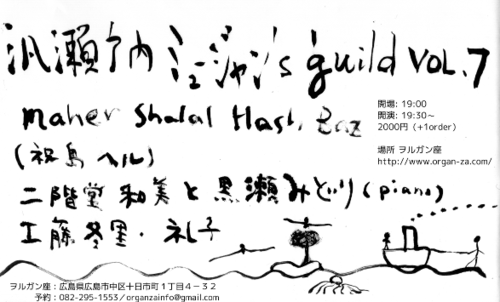 汎瀬戸内ミュージャン's guild VOL.7
maher shalal Hash Baz
(祝島ヘル)
二階堂和美と黒瀬みどり(piano)
工藤冬里・礼子
開場: 19:00
開演: 19:30~
2000円 (+1order)
場所 ヲルガン座
http://www.organ-za.com/
ヲルガン座:広島県広島市中区十日市町1丁目4−32
予約:082-295-1553/organzainfo@gmail.com